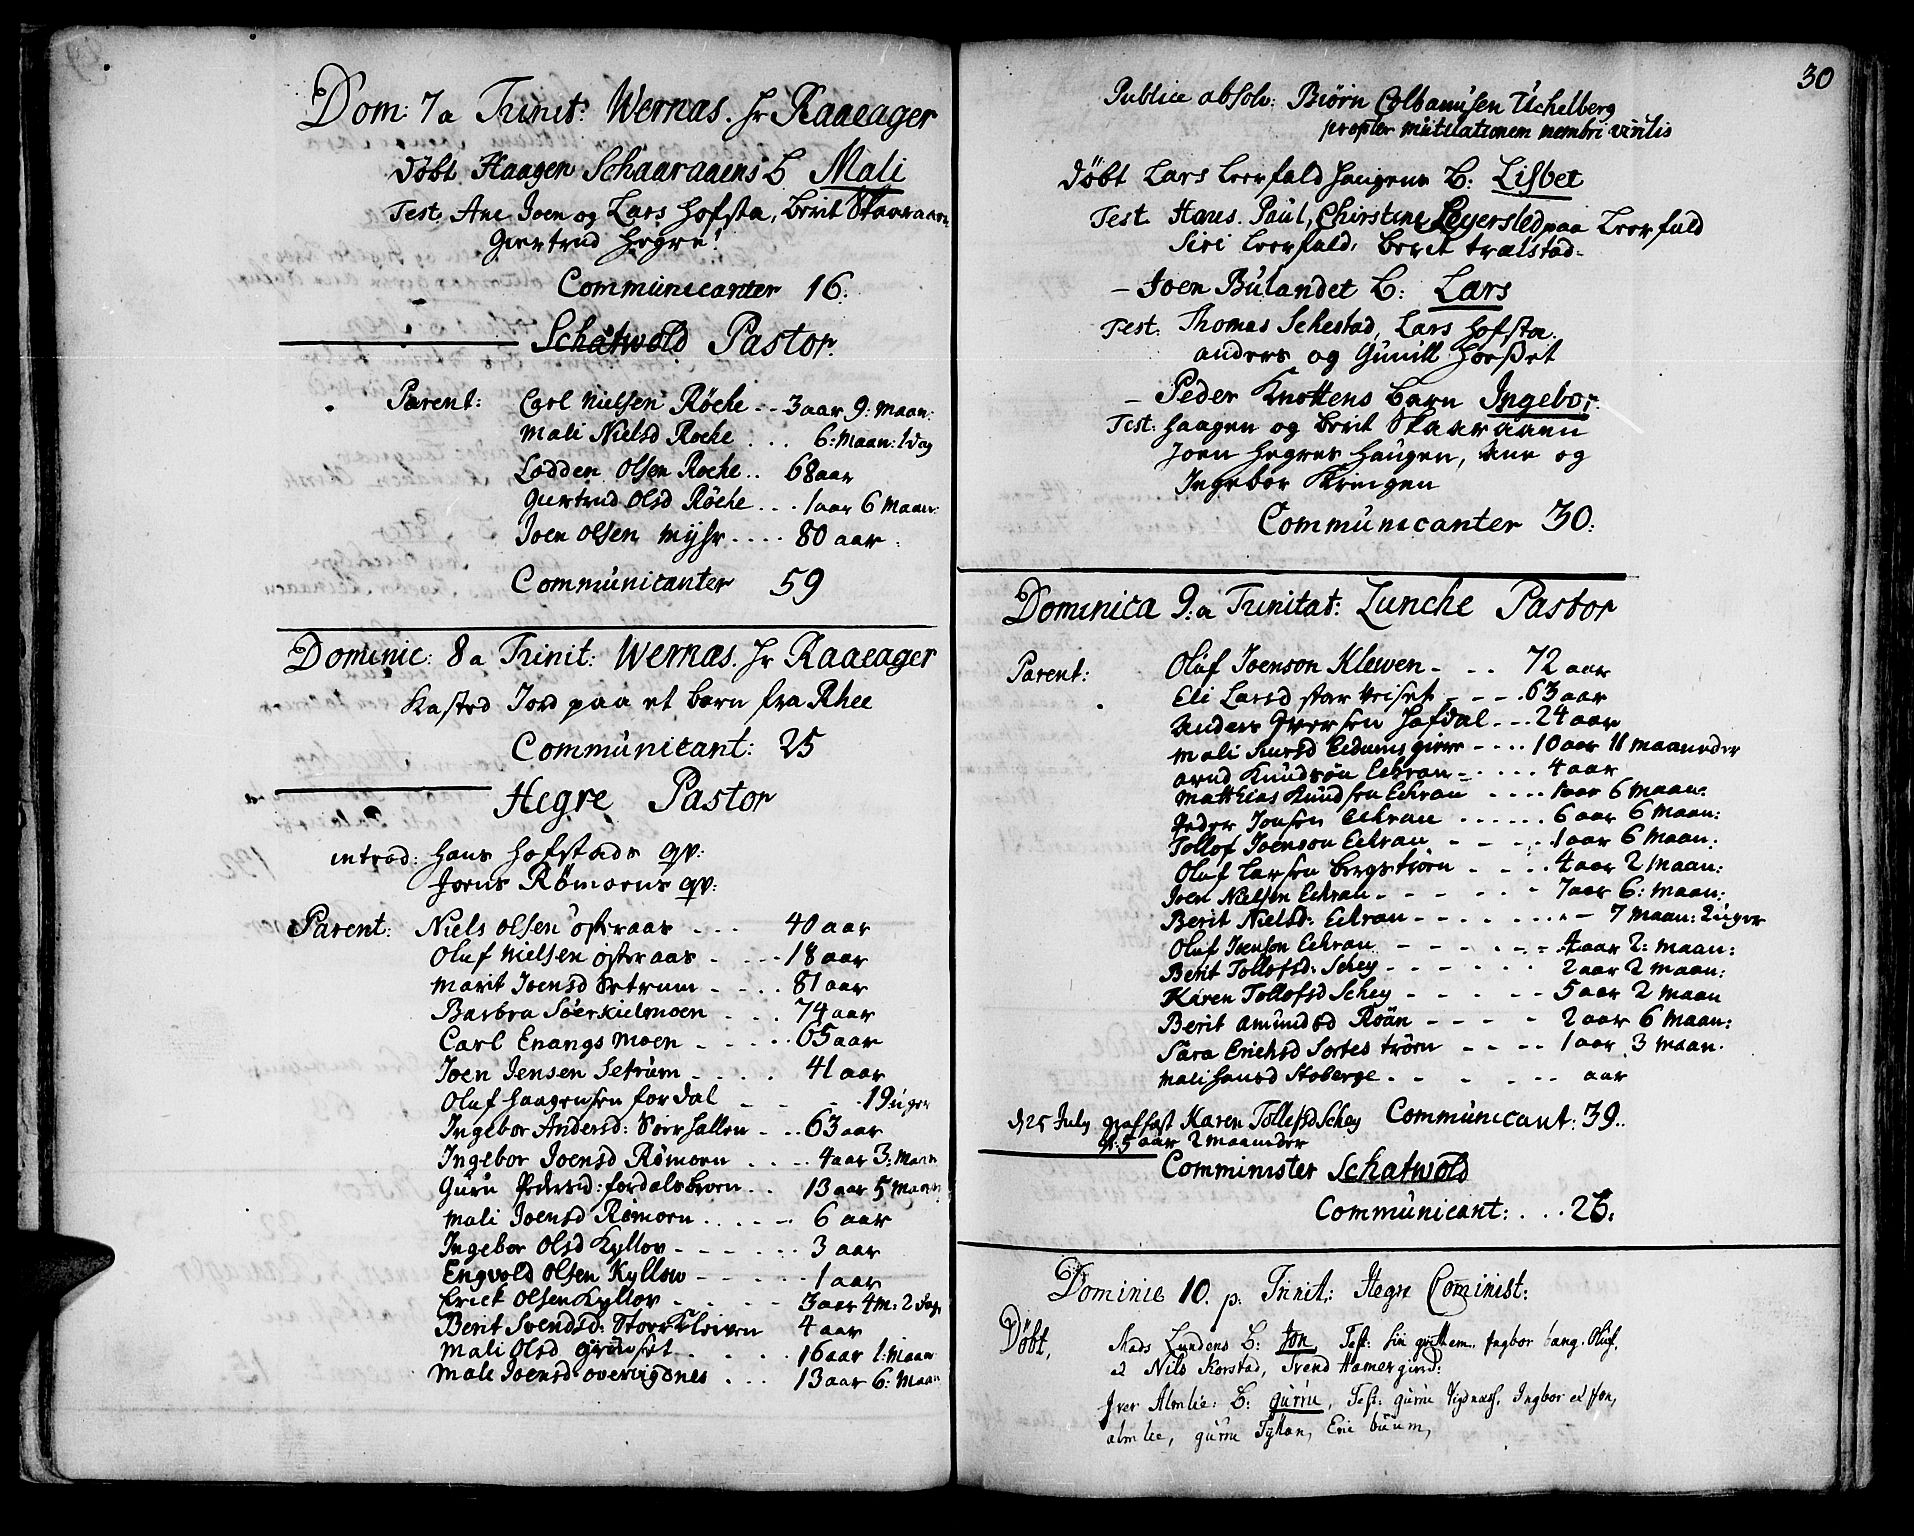 Dom: 7a Trinit: Wernæs. Hr Raaeager
Døbt Haagen Schaaraaens b Mali
Test. Ane Joen og Lars Hofsta, berit Skaaraaen
Giertrud Hegre!
Communicanter 16:
Schatwold Pastor.
Parent: Carl Nielsen Røche -- 3 aar 9: maan:
Mali Nielsd Røche . . . 6: maan: 1 dag
Lodden Olsen Roche .. 68 aar
Giertrud Olsd Røche . . . 1 aar 6 Maan:
Joen Olsen myhr . . . . 80 aar.
Communicanter 59
Dominic: 8a Trinit: Wernæs. Hr Raaeager
Kasted Jord paa et barn fra Rhee
Communicant: 25
Hegre Pastor
introd: Hans Hofstads qv:
Joens Rømoens qv:
Parent: Niels Olsen østeraas . . . 40 aar
Oluf Nielsen østeraas . . . 18 aar
Marit Joensd Setrum - . . . 81 aar
Barbra Søerkielmoen . . . 74 aar
Carl Enangs moen - . . . 65 aar
Joen Jensen Setrum - . . . 41 aar
Oluf Haagensen fordal - - - - 19 uger
Ingebor Andersd: Sørhallen - .. 63 aar
Ingebor Joensd Rømoen . . . . 4 aar 3: Maan
Guru Pedersd: fordalsbroen . . 13 aar 5 Maan
Mali Joensd Rømoen . . . . - 6 aar
Ingebor Olsd Kyllov - - - - . . 3 aar
Engvold Olsen Kyllow - - - - - 1 aar
Erick Olsen Kyllov - - - - . 3 aar 4 m: 2 dage
Berit Svendsd: Storkleiven 4 aar
Mali Olsd grünset . . . . . 16 aar 1: Maan
Male Joensd overvigdnes . . . 13 aar 6: Maan
30
Publice absolv: Biørn Colbanusen Uchelberg
propter mutilationem membri virilis
Døbt Lars Leerfald Haugens b: Lisbet
Test. Hans. Paul, Chirstine Leyersled paa Leerfald
Siri Leerfald, berit trælstad-
- Joen Bulandet b: Lars
Test: Thomas Schestad, Lars Hofsta.
anders og Gunill Hoeset
- Peder Knottens barn Ingebor.
Test: Haagen og berit Skaaraaen
Joen Hegres Haugen, Ane og
Ingebor Kringen
Communicanter 30:
Dominica 9:a Trinitat: Lunche Pastor
Parent: Oluf Joenson Klewen - . . 72 aar
Eli Larsd størkriset - - - . 63 aar
Anders Iversen Hofdal - - . 24 aar
Mali Knudsd Eidums gierre - . . . 10 aar 11 maaneder
Arnd Knudsøn Eckran - - . . . . 4 aar
Matthias Knudsen Eckran . . . . 1 aar 6 maan:
Peder Jonsen Eckran . . . . . . 6 aar 6 maan:
Tollof Joenson Eckran - - - . . . 1 aar 6 Maan:
Oluf Larsen bergstrøen - . . . 4 aar 2 Maan:
Joen Nielsen Eckran - - - - - - 7 aar 6: maan:
Berit Nielsd: Eckran - - - - - . . - 7 maan: 2 uger
Oluf Jenson Eckran - - - - . . - 4 aar 2: maan:
Berit Tollofsd: Schey - - - - - - 2 aar 2 maan:
Karen Tollofsd Schey - - - - - 5 aar 2 maan
Berit Amundsd Roän - - - - 2 aar 6 Maan:
Sara Erichsd Sortes trøen - - - - 1 aar 3 maan.
Mali Hansd Stoberge . . - - - - aar
d 25 July graffæst Karen Tollefsd Schey Communicant: 39..
g: 5 aar 2 maaneder
Comminister Schatwold
Communicant: . . . 26:
Dominic 10. p. Trinit: Hegre Cominist:
Døbt, Mads Lundens b: Jon, Test: Siri grettem, Ingbor bang. Oluf,
2 Nils Korstad, Svend Hamer giord:
Iver Almlie: b: guru, Test: guru Vigdnæs, Ingbor ed Jon,
almlie, guru Fyllan, Eric buum,